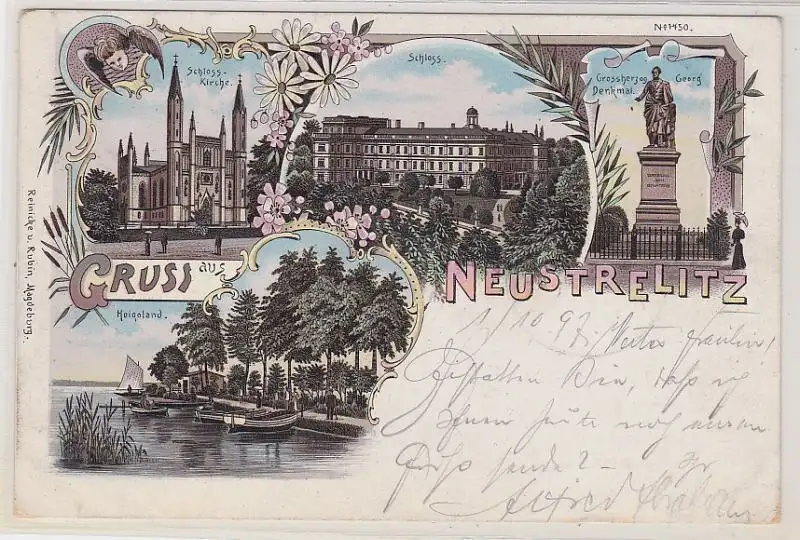 No 1450.
Schloss-
Kirche.
Schloss.
Grossherzog Georg
Denkmal.
GRUSS aus
NEUSTRELITZ
Helgoland.
Reinicke u. Rubin, Magdeburg.
1/10 97. Wertes Fräulein!
Gestatten Sie, daß ich
Ihnen heute noch
Gruß sende? –
Alfred